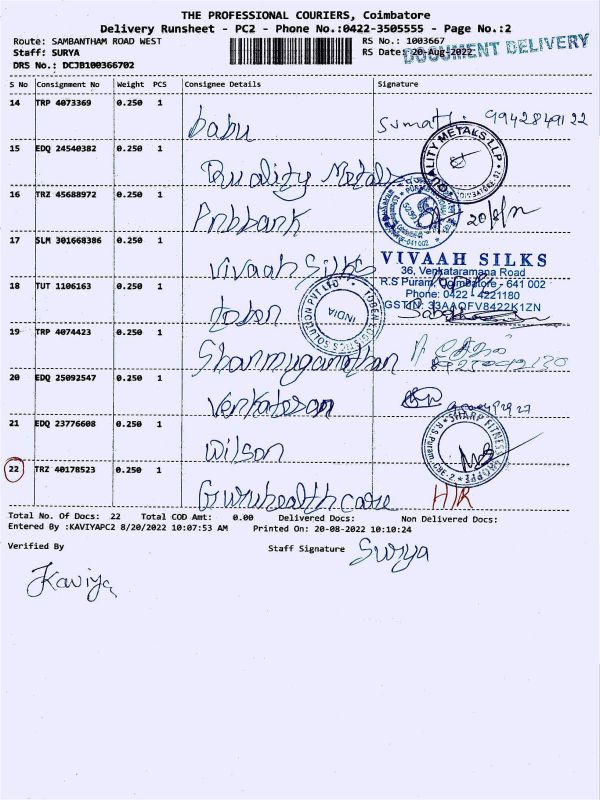 THE PROFESSIONAL COURIERS, Coimbatore
Delivery Runsheet - PC2 - Phone No.:0422-3505555 - Page No.:2
Route: SAMBANTHAM ROAD WEST
RS No.: 1003667
Staff: SURYA
RS Date: 20-Aug-2022
DOCUMENT DELIVERY
DRS No.: DCJB100366702
S No Consignment No Weight PCS Consignee Details Signature
14 TRP 4073369 0.250 1 babu Sumathi 9942849122
15 EDQ 24540382 0.250 1 Quality Metals
QUALITY METALS LLP
16 TRZ 45688972 0.250 1 Pnbbank 20/8/22
17 SLM 301668386 0.250 1 Vivaah Silks
VIVAAH SILKS
36, Venkataramana Road
R.S Puram, Coimbatore - 641 002
Phone: 0422 - 4221180
GSTIN: 33AAQFV8422K1ZN
18 TUT 1106163 0.250 1 toben
TOBEN LOGISTICS SOLUTION PVT LTD
INDIA
19 TRP 4074423 0.250 1 Shanmuganathan
20 EDQ 25092547 0.250 1 Venkatesan
21 EDQ 23776608 0.250 1 Wilson
SHARP FITNESS
R.S.Puram, CBE-2.
22 TRZ 40178523 0.250 1 Guruhealthcare H/R
Total No. Of Docs: 22 Total COD Amt: 0.00 Delivered Docs: Non Delivered Docs:
Entered By :KAVIYAPC2 8/20/2022 10:07:53 AM Printed On: 20-08-2022 10:10:24
Verified By Staff Signature Surya
Kaviya